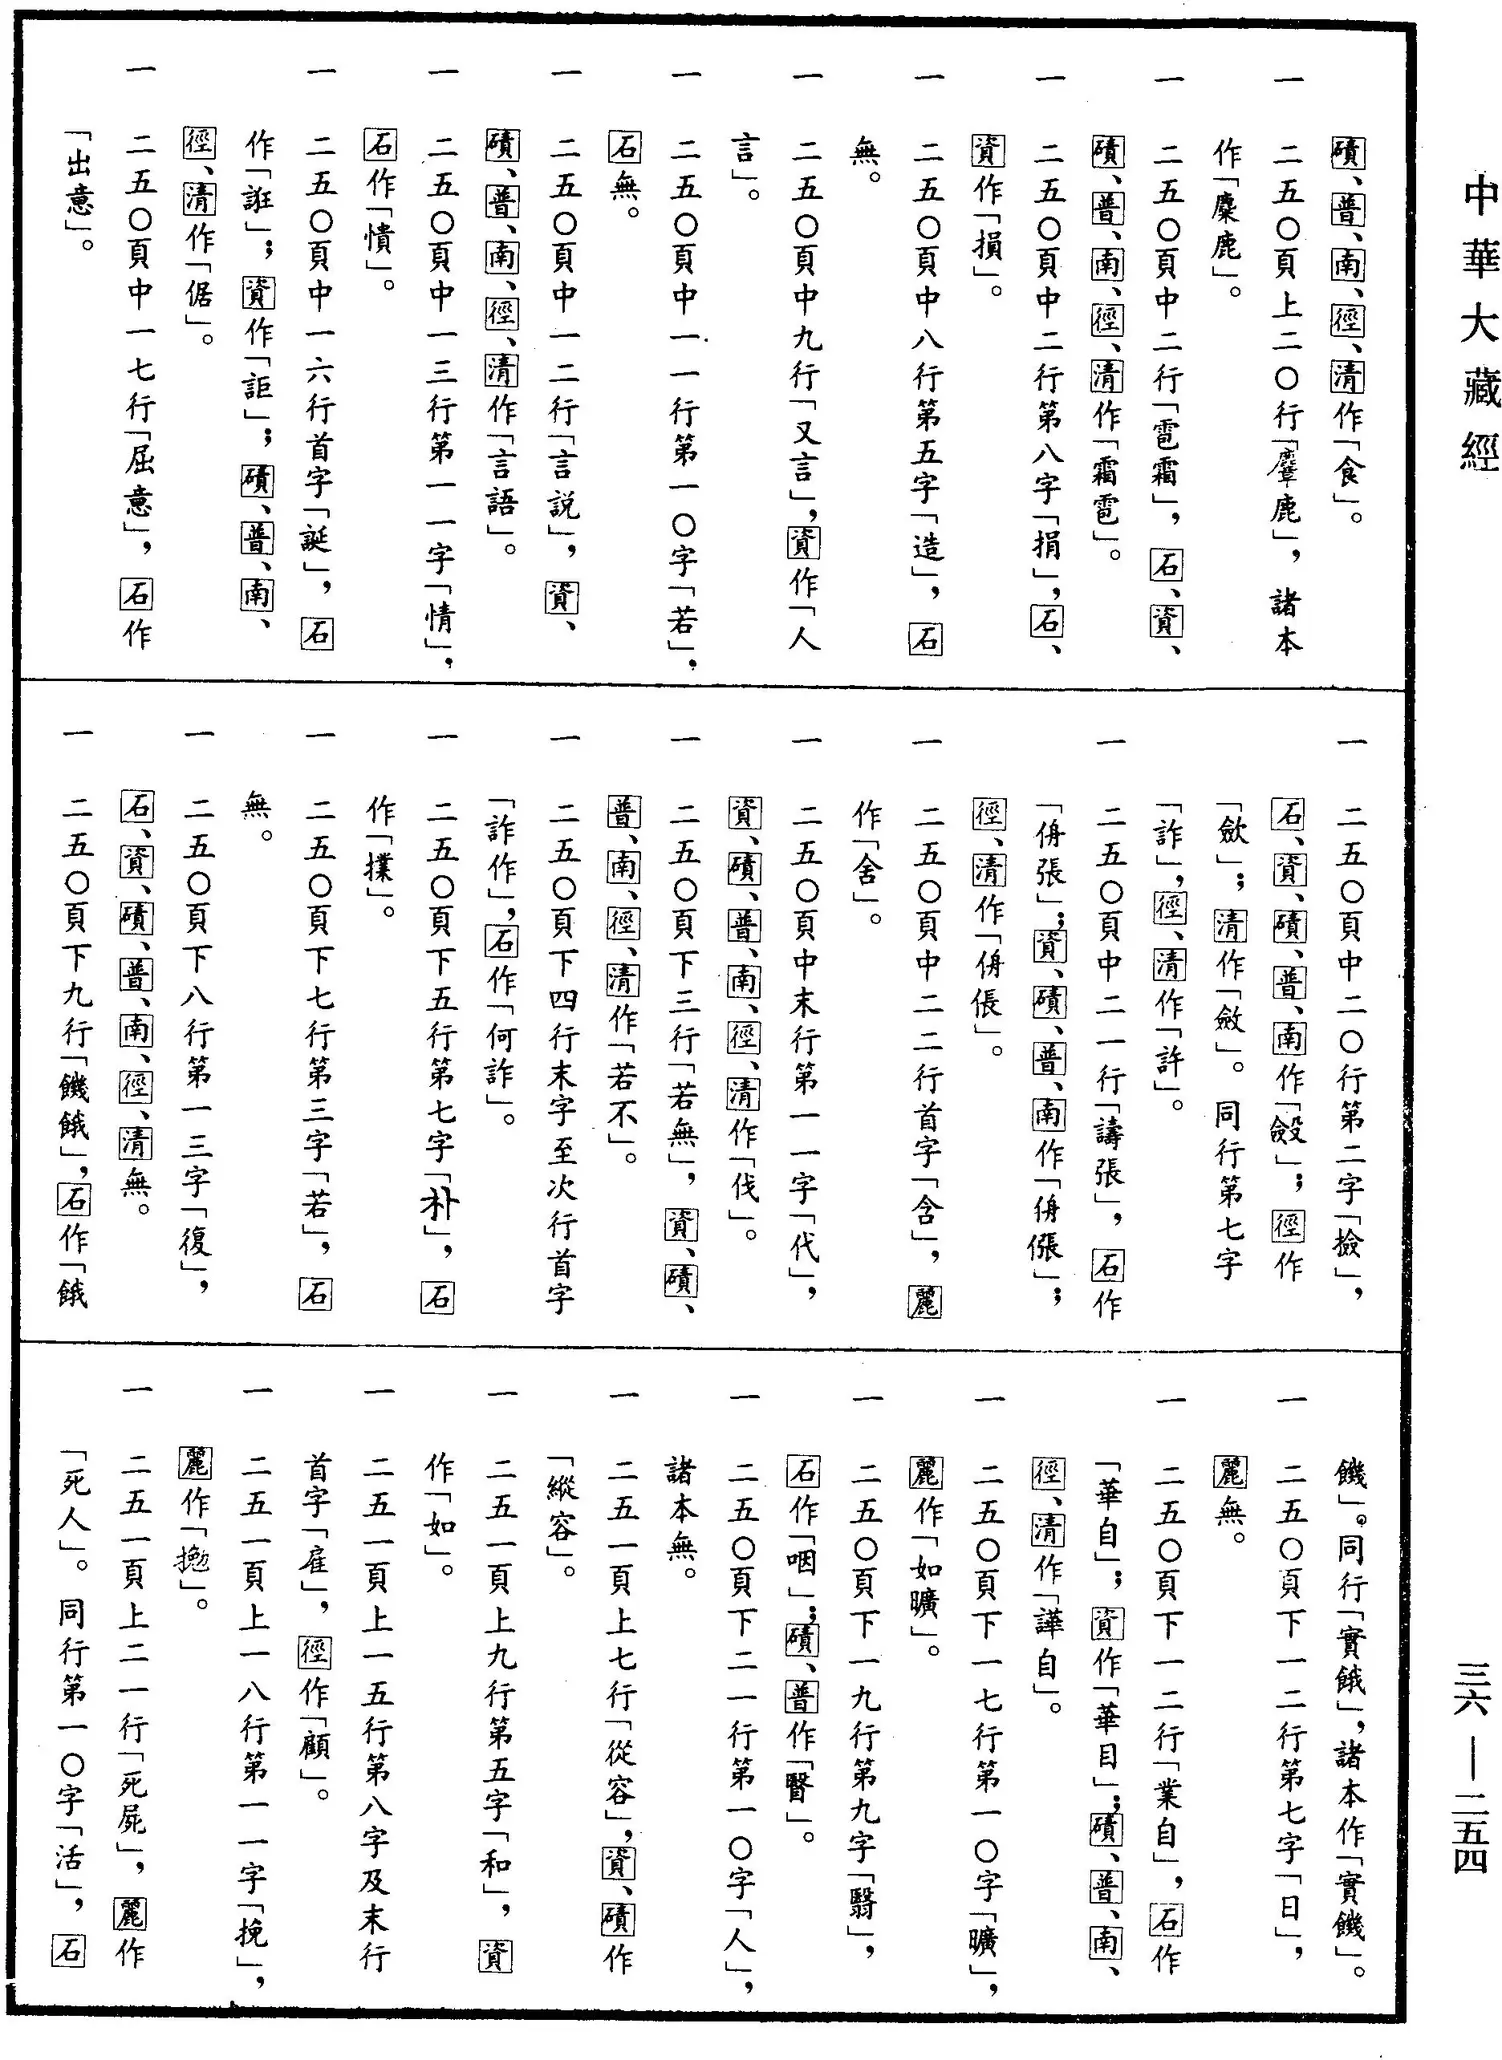 中華大藏經
磧、普、南、徑、清作「食」。
一 二五〇頁上二〇行「麞鹿」，諸本
作「麋鹿」。
一 二五〇頁中二行「雹霜」，石、資、
磧、普、南、徑、清作「霜雹」。
一 二五〇頁中二行第八字「捐」，石、
資作「損」。
一 二五〇頁中八行第五字「造」，石
無。
一 二五〇頁中九行「又言」，資作「人
言」。
一 二五〇頁中一一行第一〇字「若」，
石無。
一 二五〇頁中一二行「言説」，資、
磧、普、南、徑、清作「言語」。
一 二五〇頁中一三行第一一字「情」，
石作「憒」。
一 二五〇頁中一六行首字「誕」，石
作「誑」；資作「詎」；磧、普、南、
徑、清作「倨」。
一 二五〇頁中一七行「屈意」，石作
「出意」。
一 二五〇頁中二〇行第二字「撿」，
石、資、磧、普、南作「㱃」；徑作
「歛」；清作「斂」。同行第七字
「詐」，徑、清作「許」。
一 二五〇頁中二一行「譸張」，石作
「侜張」；資、磧、普、南作「侜漲」；
徑、清作「侜倀」。
一 二五〇頁中二二行首字「含」，麗
作「舍」。
一 二五〇頁中末行第一一字「代」，
資、磧、普、南、徑、清作「伐」。
一 二五〇頁下三行「若無」，資、磧、
普、南、徑、清作「若不」。
一 二五〇頁下四行末字至次行首字
「詐作」，石作「何詐」。
一 二五〇頁下五行第七字「朴」，石
作「撲」。
一 二五〇頁下七行第三字「若」，石
無。
一 二五〇頁下八行第一三字「復」，
石、資、磧、普、南、徑、清無。
一 二五〇頁下九行「饑餓」，石作「餓
饑」。同行「實餓」，諸本作「實饑」。
一 二五〇頁下一二行第七字「日」，
麗無。
一 二五〇頁下一二行「業自」，石作
「華自」；資作「華目」；磧、普、南、
徑、清作「譁自」。
一 二五〇頁下一七行第一〇字「曠」，
麗作「如曠」。
一 二五〇頁下一九行第九字「翳」，
石作「咽」；磧、普作「瞖」。
一 二五〇頁下二一行第一〇字「人」，
諸本無。
一 二五一頁上七行「從容」，資、磧作
「縱容」。
一 二五一頁上九行第五字「和」，資
作「如」。
一 二五一頁上一五行第八字及末行
首字「雇」，徑作「顧」。
一 二五一頁上一八行第一一字「挽」，
麗作「㧾」。
一 二五一頁上二一行「死屍」，麗作
「死人」。同行第一〇字「活」，石
三六—二五四